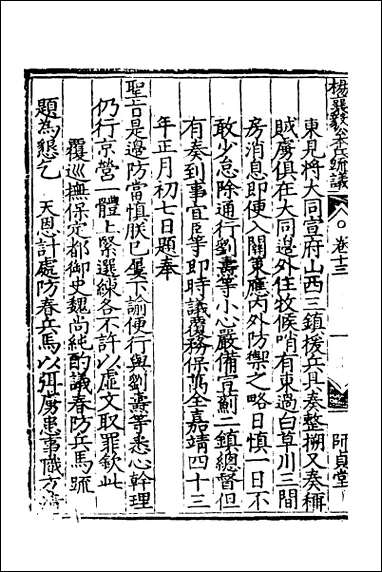 楊襄毅公本兵疏議 卷十三 師貞堂
東見將大同宣府山西三鎮援兵具奏整搠又奏稱
賊虜俱在大同邊外住牧候哨有東過白草川三間
房消息即便入關東應內外防禦之略日慎一日不
敢少怠除通行劉燾等小心嚴備宣薊二鎮總督但
有奏到事宜臣等即時議覆務保萬全嘉靖四十三
年正月初七日題奉
聖旨是邊防當慎朕已屢下諭便行與劉燾等悉心幹理
仍行京營一體上緊選練各不許以虛文取罪欽此
覆巡撫保定都御史魏尚純酌議春防兵馬疏
題為懇乞 天恩計處防春兵馬以弭虜患事職方清